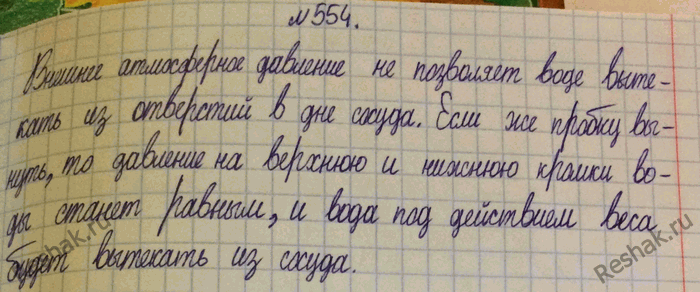 №554.
Внешнее атмосферное давление не позволяет воде выте-
кать из отверстий в дне сосуда. Если же пробку вы-
нуть, то давление на верхнюю и нижнюю кромки во-
ды станет равным, и вода под действием веса
будет вытекать из сосуда.
Reshak.ru
Reshak.ru